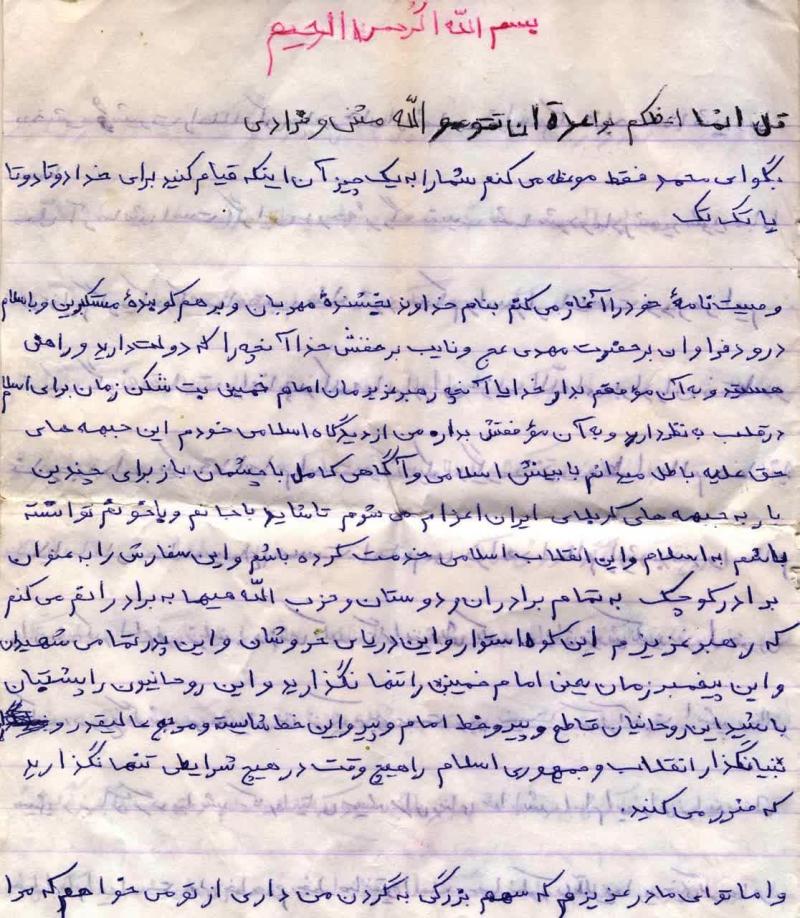 بسم الله الرحمن الرحیم
قل انما اعظکم بواحدة ان تقومو الله مثنی و فرادی
بگو ای محمد فقط موعظه می کنم شما را به یک چیز آن اینکه قیام کنید برای خدا دوتا دوتا
یا تک تک
وصییت نامهٔ خود را آغاز می کنم بنام خداوند بخشندهٔ مهربان و درهم کوبندهٔ مستکبرین و باسلام
درود فراوان بر حضرت مهدی عج و نایب برحقش خدا آنچه را که دوست دارید و راضی
هستید و به آن مؤفقم بدار خدایا آنچه رهبر عزیزمان امام خمینی بت شکن زمان برای اسلام
در قلب به نظر دارید و به آن مؤفقش بداره من از دیدگاه اسلامی خودم این جبهه های
حق علیه باطل میدانم با بینش اسلامی و آگاهی کامل با چشمان باز برای چندین
بار به جبهه های کربلای ایران اعزام می شوم تا شاید با جانم و یا خونم توانسته
باشم به اسلام و این انقلاب اسلامی خدمت کرده باشم و این سفارش را به عنوان
برادر کوچک به تمام برادران و دوستان و حزب اللّه میها به برادرانم می کنم
که رهبر عزیزم این کوه استوار و این دریای خروشان و این پدر تمامی شهیدان
و این پیغمبر زمان یعنی امام خمینی را تنها نگذارید و این روحانیون را پشتیبان
باشید این روحانیان قاطع و پیرو خط امام و پیرو این خط شایسته و مرجع عالیقدر و
بنیانگذار انقلاب و جمهوری اسلام را هیچ وقت در هیچ شرایطی تنها نگذارید
که ضرر می کنید.
و اما تو ای مادر عزیزم که سهم بزرگی به گردن من داری از تو می خواهم که مرا